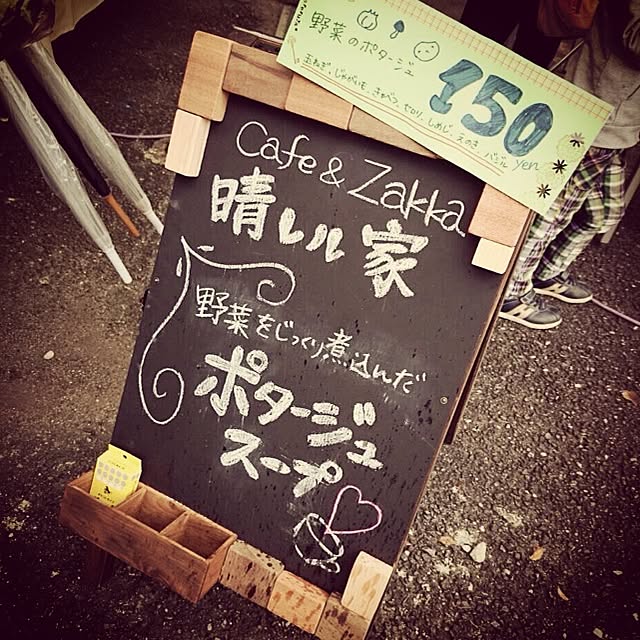 野菜のポタージュ
玉ねぎ、じゃがいも、きゃべつ、セロリ、しめじ、えのき、バジル
150 yen
Cafe & Zakka
晴レル家
野菜をじっくり煮込んだ
ポタージュ
スープ